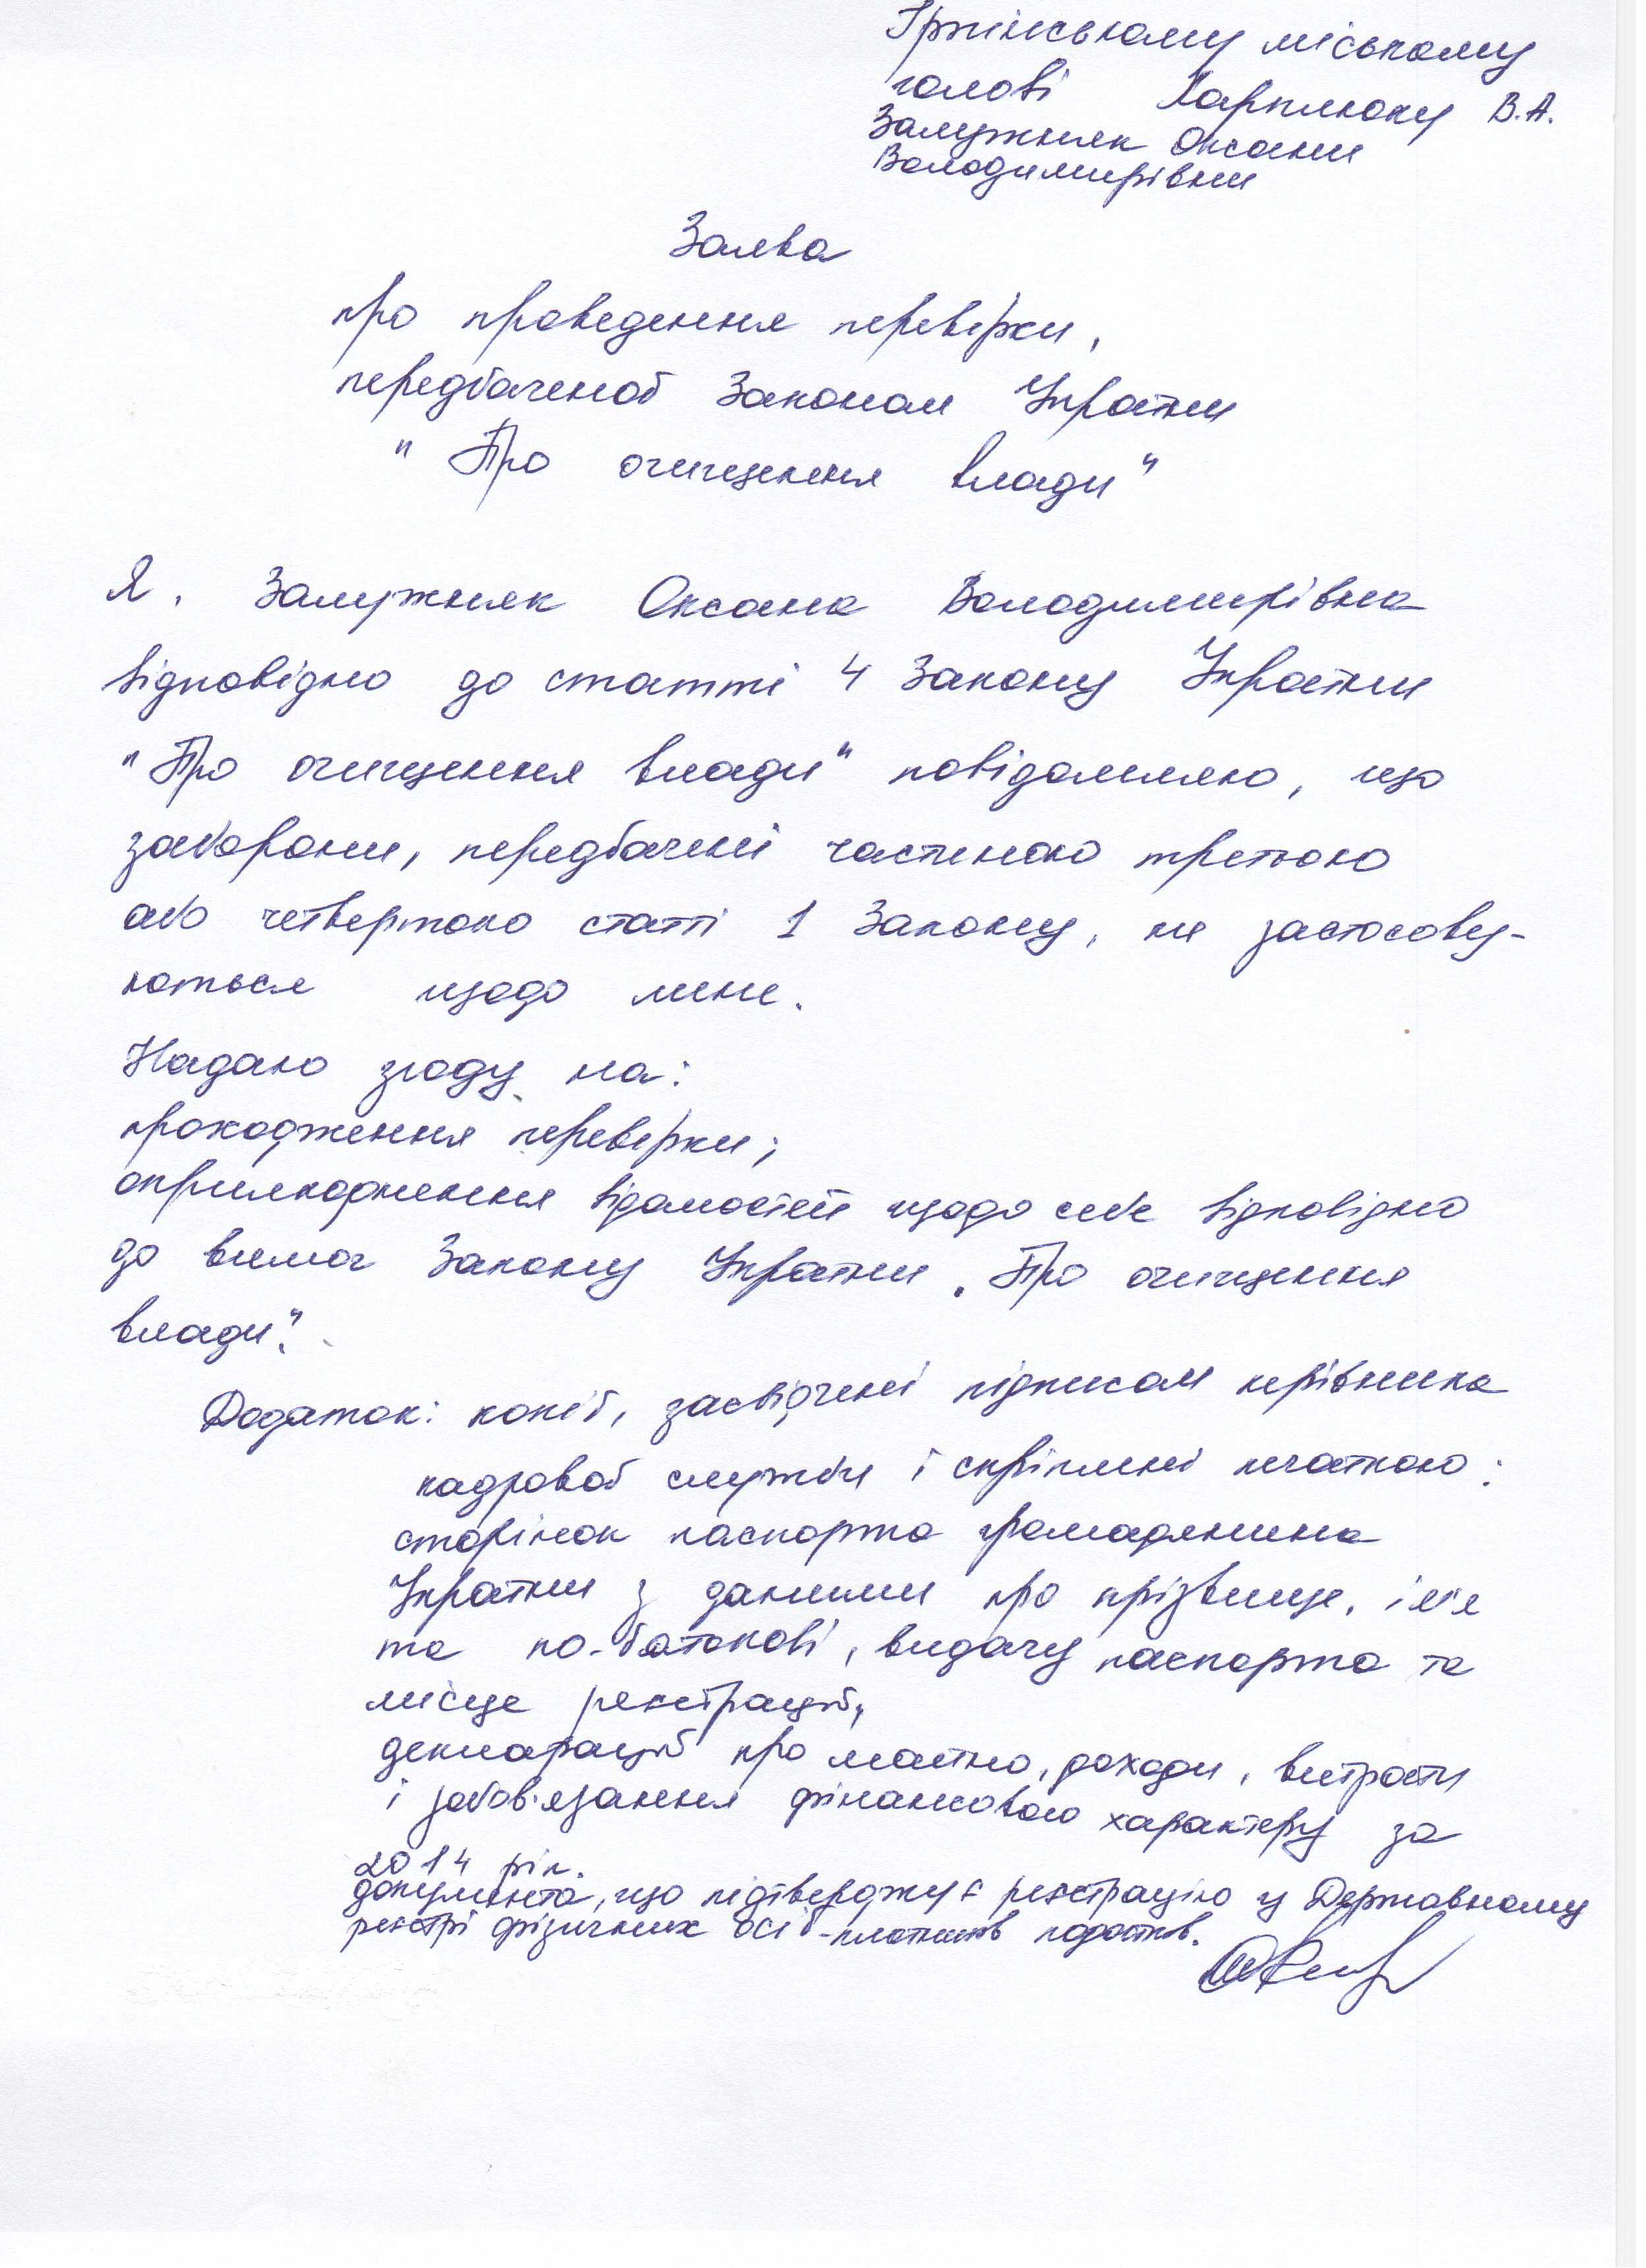 Ірпінському міському
голові Карплюку В.А.
Залужняк Оксани
Володимирівни
Заява
про проведення перевірки,
передбаченої Законом України
"Про очищення влади"
Я, Залужняк Оксана Володимирівна
відповідно до статті 4 Закону України
"Про очищення влади" повідомляю, що
заборони, передбачені частиною третьою
або четвертою статті 1 Закону, не застосову-
ються щодо мене.
Надаю згоду на:
проходження перевірки;
оприлюднення відомостей щодо себе відповідно
до вимог Закону України „Про очищення
влади".
Додаток: копії, засвідчені підписом керівника
кадрової служби і скріплені печаткою:
сторінок паспорта громадянина
України з даними про прізвище, ім'я
та по-батькові, видачу паспорта та
місце реєстрації,
декларації про майно, доходи, витрати
і зобов'язання фінансового характеру за
2014 рік.
документа, що підтверджує реєстрацію у Державному
реєстрі фізичних осіб-платників податків.